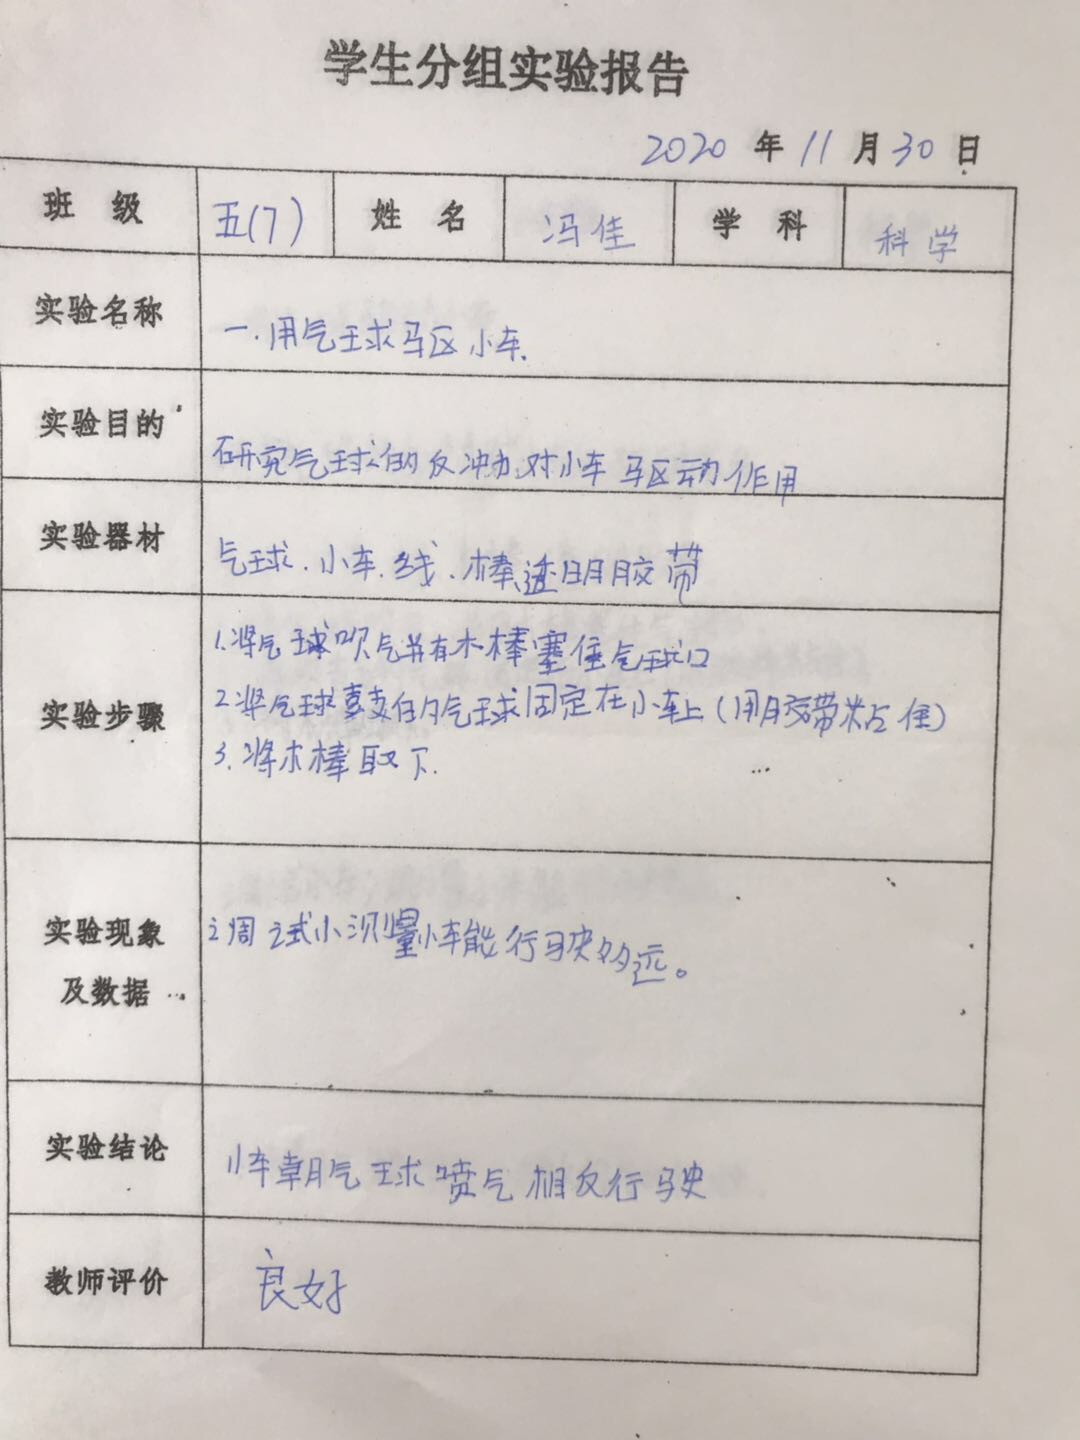 学生分组实验报告
2020年11月30日
班 级 五(7) 姓 名 冯佳 学 科 科学
实验名称 一.用气球马区小车.
实验目的 研究气球的反冲力对小车驱动作用
实验器材 气球.小车.线.棒透明胶带
实验步骤
1.将气球吹气并有木棒塞住气球口
2.将气球的气球固定在小车上(用胶带粘住)
3.将木棒取下.
实验现象
及数据
调试小测量小车能行驶多远。
实验结论 小车朝气球喷气相反行驶
教师评价 良好